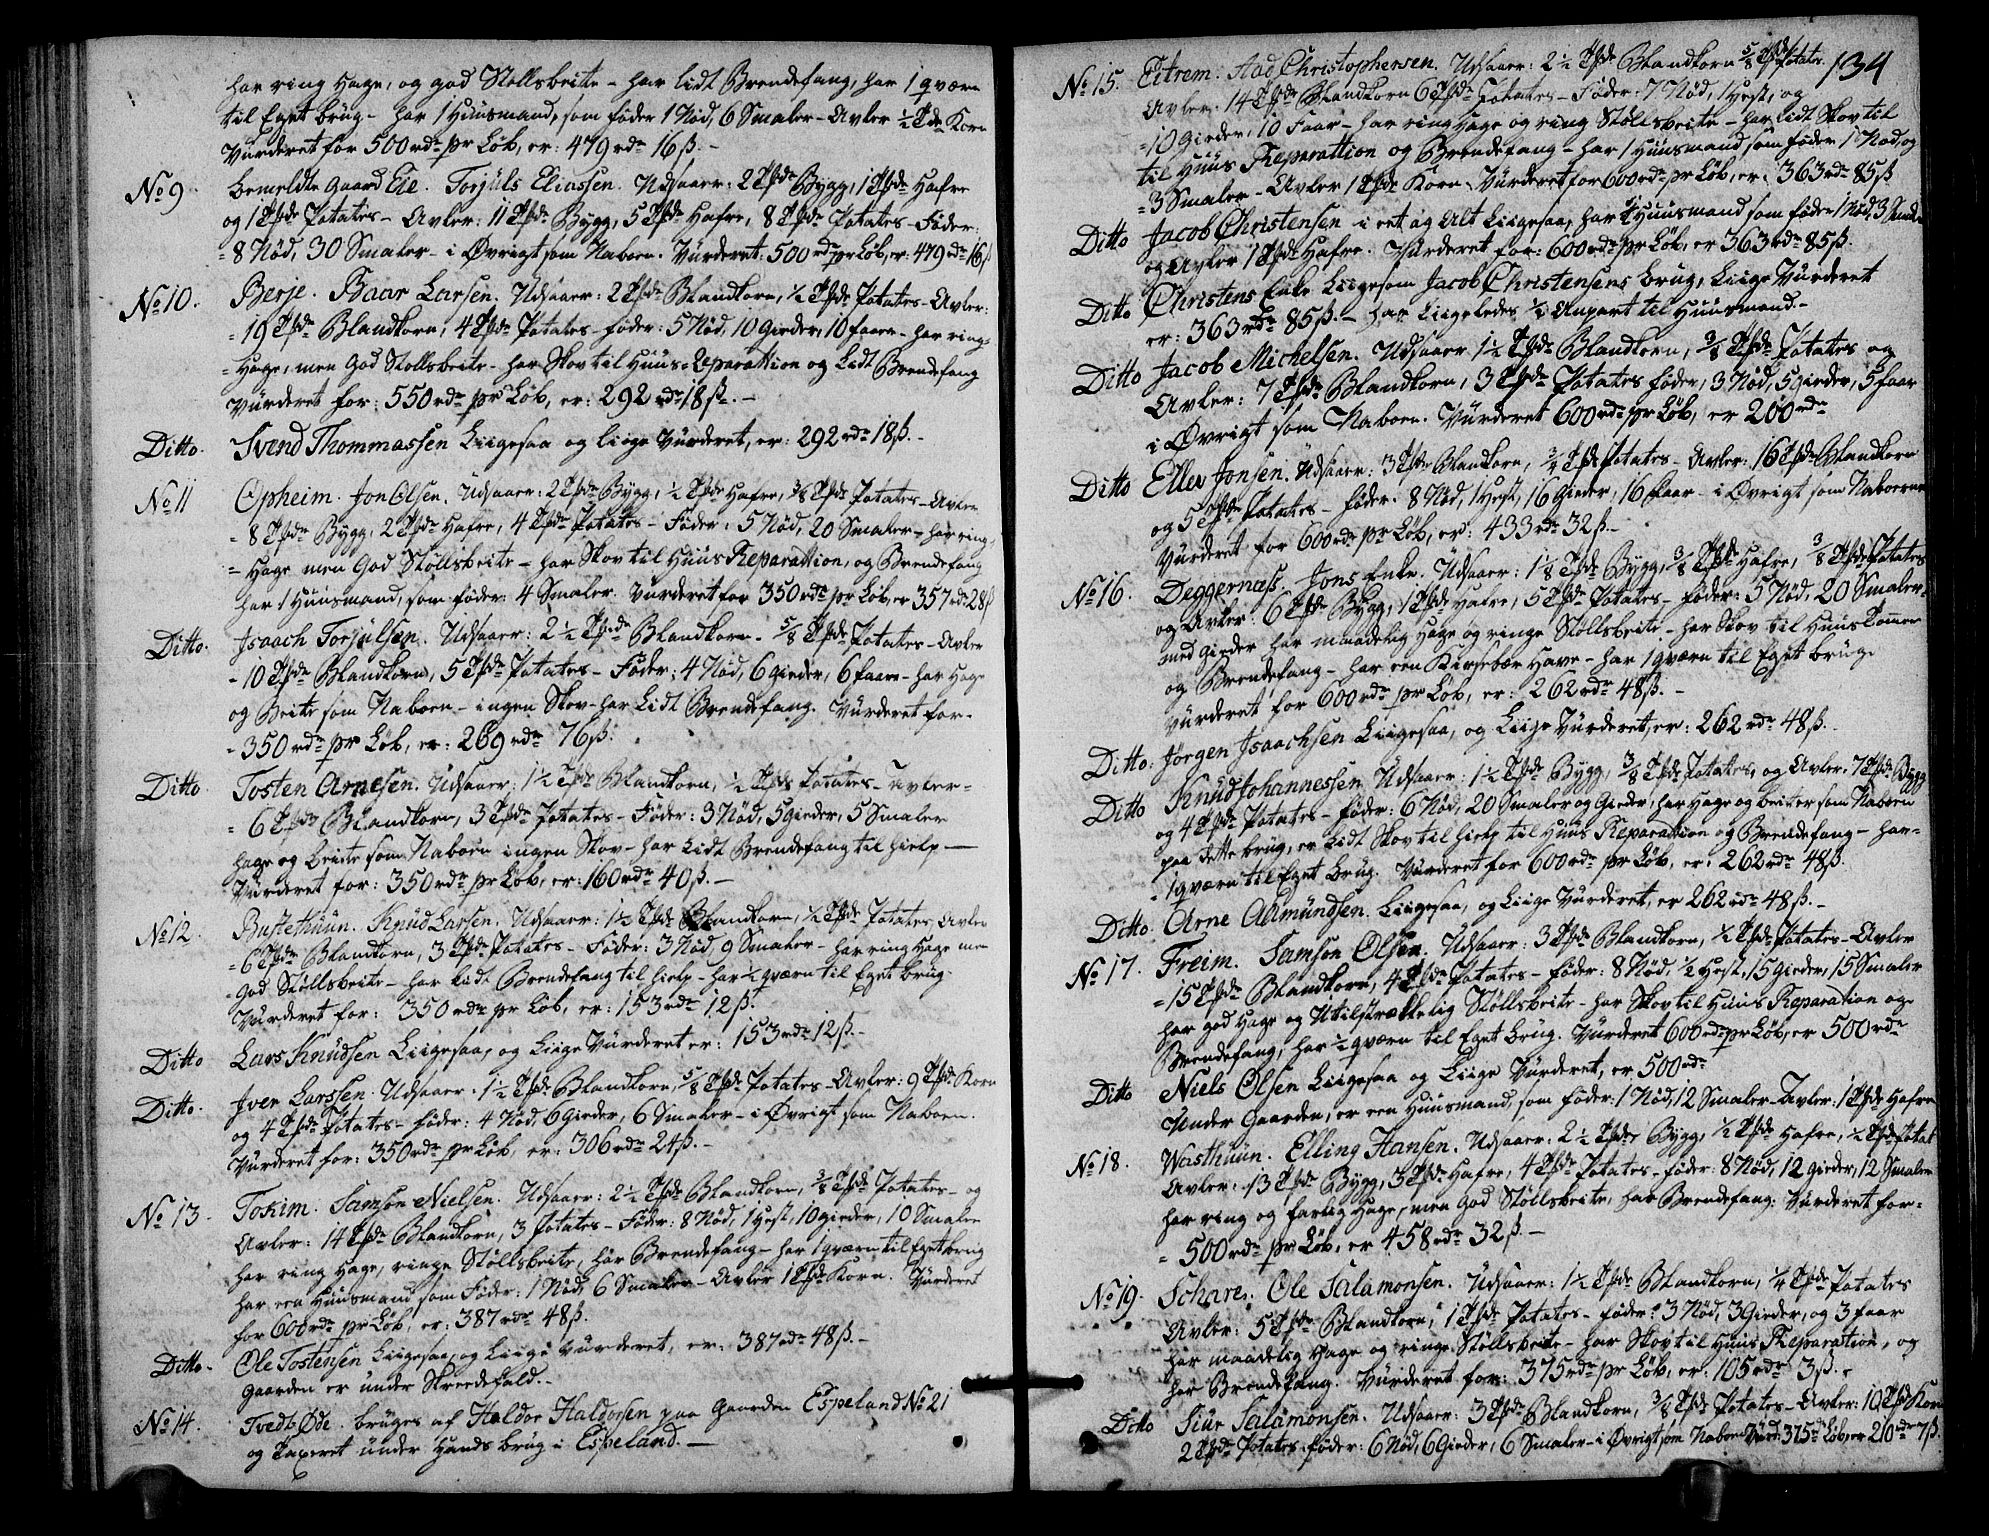 har ring Hage, og god Støllsbeite – har Lidt Brendefang, har 1 qværn
til Eget brug – har 1 Huusmand, som føder 1 Nød, 6 Smaler – Avler ½ Tpde Korn
Vurderet for 500 rdr pr Løb, er: 479 rdr 16 ß. –
No 9 bemeldte Gaard Eie. Torjuls Eliassen. Udsaaer: 2 Tpde Bygg, 1 Tpde Hafre
og 1 Tpde Potates – Avler: 11 Tpde Bygg, 5 Tpde Hafre, 8 Tpde Potates – Føder:
= 8 Nød, 30 Smaler – i Øvrigt som Naboen. Vurderet: 500 rdr pr Løb, er: 479 rdr 16 ß
No 10. Berje. Baar Larsen. Udsaaer: 2 Tpde Blandkorn, ½ Tpde Potates – Avler:
= 10 Tpde Blandkorn, 4 Tpde Potates – føder: 5 Nød, 10 Gieder, 10 faare – har ring=
= Hage, men God Stollsbeite – har Skov til Huus=Reparattion og Lidt Brendefang
Vurderet for: 550 rdr pr Løb, er: 292 rdr 18 ß. –
Ditto. Svend Thommassen Liigesaa og liige Vurderet, er: 292 rdr 18 ß. –
No 11 Opheim. Jon Olsen. Udsaaer: 2 Tpde Bygg, ½ Tpde Hafre, 3/8 Tpde Potates – Avler
= 8 Tpde Bygg, 2 Tpde Hafre, 4 Tpde Potates – Føder: 5 Nød, 20 Smaler – har ring,
= Hage men God Støllsbeite – har Skov til Huus Reparattion, og Brendefang
har 1 Huusmand, som føder: 4 Smaler. Vurderet for 350 rdr pr Løb, er 357 rdr 28 ß
Ditto. Isaach Torjulsen. Udsaaer: 2½ Tpde Blandkorn – 5/8 Tpde Potates – Avler
– 10 Tpde Blandkorn, 5 Tpde Potates – Føder: 4 Nød, 6 gieder, 6 faare – har Hage
og Beite som Naboen – ingen Skov – har Lidt Brendefang. Vurderet for –
– 350 rdr pr Løb, er: 269 rdr 76 ß.
Ditto Tosten Arnesen. Udsaaer: 1½ Tpde Blandkorn, ½ Tpde Potates – Avler =
= 6 Tpde Blandkorn, 3 Tpde Potates – Føder: 3 Nød, 5 gieder, 5 Smaler
hage og beite som Naboen ingen Skov – har Lidt Brendefang til hielp —
Vurderet for: 350 rdr pr Løb, er: 160 rdr 40 ß. –
No 12. Bustethuun. Knud Larsen. Udsaaer: 1½ Tpde Blandkorn, ½ Tpde Potates, Avler
= 6 Tpde Blandkorn, 3 Tpde Potates – Føder: 3 Nød, 9 Smaler – har ring Hage men
– God Støllsbeite – har Lidt Brendefang til hielp – har ½ qværn til Eget brug.
Vurderet for: 350 rdr pr Løb, er: 153 rdr 12 ß.
Ditto Lars Knudsen Liigesaa, og Liige Vurderet er: 153 rdr 12 ß. –
Ditto. Iver Larssen. Udsaaer: 1½ Tpde Blandkorn, 5/8 Tpde Potates – Avler: 9 Tpde Korn
og 4 Tpde Potates – føder: 4 Nød, 6 Gieder, 6 Smaler – i Øvrigt som Naboen.
Vurderet for: 350 rdr pr Løb, er: 306 rdr 24 ß. –
No 13. Tokim. Samson Nielsen. Udsaaer: 2½ Tpde Blandkorn, 3/8 Tpde Potates – og
Avler: 14 Tpde Blandkorn, 3 Potates – Føder: 8 Nød, 1 Hest, 10 gieder, 10 Smaler
har ring Hage, ringe Støllsbeite, har Brendefang – har 1 qværn til Eget brug
har een Huusmand som Føder: 1 Nød, 6 Smaler – Avler 1 Tpde Korn. Vurderet
for 600 rdr pr Løb, er: 387 rdr 48 ß.
Ditto. Ole Tostensen Liigesaa, og Liige Vurderet, er: 387 rdr 48 ß. –
Gaarden er under Skreedefald. –
No 14. Tvedt Øde. bruges af Haldor Haldorsen paa Gaarden Espeland No 21
og Taxeret under Hands brug i Espeland. —
134
No 15. Eitrem. Aad Christophersen. Udsaaer: 2½ Tpde Blandkorn 5/8 Tpde Potates.
Avler: 14 Tpde Blandkorn 6 Tpde Potates – Føder: 7 Nød, 1 Hest, og
= 10 Gieder, 10 Faar – har ring Hage og ring Støllsbeite – har Lidt Skov til
til Huus Reparattion og Brendefang – har 1 Huusmand som føder 1 Nød, og
= 3 Smaler – Avler 1 Tpde Korn. Vurderet for 600 rdr pr Løb, er: 363 rdr 85 ß
Ditto Jacob Christensen i eet og Alt Liigesaa, har 1 Huusmand som føder 1 Nød, 3 Smaler
og Avler 1 Tpde Hafre. Vurderet for: 600 rdr pr Løb, er 363 rdr 85 ß.
Ditto Christens Enke Liigesom Jacob Christensens brug, Liige Vurderet
er: 363 rdr 85 ß. – har Liigeledes ½ Anpart til Huusmand. –
Ditto Jacob Michelsen. Udsaaer 1½ Tpde Blandkorn, 3/8 Tpde Potates og
Avler: 7 Tpde Blandkorn, 3 Tpde Potates føder, 3 Nød, 5 gieder, 5 faar
i Øvrigt som Naboen. Vurderet 600 rdr pr Løb, er 200 rdr
Ditto Eller Jonsen. Udsaaer: 3 Tpde Blandkorn, ¾ Tpde Potates – Avler: 16 Tpde Blandkorn
og 5 Tpde Potates – føder: 8 Nød, 1 Hest, 16 Gieder, 16 faar – i Øvrigt som Naboerne
Vurderet for 600 rdr pr Løb, er: 433 rdr 32 ß. –
No 16. Deggernæss. Jons Enke. Udsaaer: 1 1/8 Tpde Bygg, 3/8 Tpde Hafre, 3/8 Tpde Potates
og Avler: 6 Tpde Bygg, 1 Tpde Hafre, 5 Tpde Potates – Føder: 5 Nød, 20 Smaler
med Gieder har maadelig Hage og ringe Støllsbeite – har Skov til Huus Tømmer
og Brendefang – har een Kirsebær Have – har 1 qværn til Eget brug
Vurderet for 600 rdr pr Løb, er: 262 rdr 48 ß. –
Ditto. Jørgen Isaachsen Liigesaa, og Liige Vurderet, er: 262 rdr 48 ß. –
Ditto Knud Johannessen. Udsaaer: 1½ Tpde Bygg, 3/8 Tpde Potates, og Avler: 7 Tpde Bygg
og 4 Tpde Potates – føder: 6 Nød, 20 Smaler og Gieder, har Hage og beiter som Naboen
paa dette brug, er Lidt Skov til hielp til Huus Reparattion og Brendefang – har –
– 1 qværn til Eget brug. Vurderet for 600 rdr pr Løb, er: 262 rdr 48 ß.
Ditto. Arne Aamundsen. Liigesaa, og Liige Vurderet, er 262 rdr 48 ß. –
No 17. Freim. Samson Olsen. Udsaaer: 3 Tpde Blandkorn, ½ Tpde Potates – Avler
= 15 Tpde Blandkorn, 4 Tpde Potates – føder: 8 Nød, ½ Hest, 15 Gieder, 15 Smaler
har god Hage og Utilstrækkelig Støllsbeite – har Skov til Huus Reparation og
Brendefang, har ½ qværn til Eget brug. Vurderet 600 rdr pr Løb, er 500 rdr
Ditto Niels Olsen Liigesaa og Liige Vurderet, er 500 rdr
Under Gaarden, er een Huusmand, som føder: 1 Nød, 12 Smaler – Avler: 1 Tpde Hafre
No 18. Wasthuun. Elling Hansen. Udsaaer: 2½ Tpde Bygg, ½ Tpde Hafre, ½ Tpde Potat
Avler: 13 Tpde Bygg, 3 Tpde Hafre, 4 Tpde Potates – føder: 8 Nød, 12 Gieder, 12 Smaler
har ring og farlig Hage, men God Støllsbeite, har Brendefang: Vurderet for –
= 500 rdr pr Løb, er 458 rdr 32 ß. –
No 19. Schare. Ole Salamonsen. Udsaaer: 1½ Tpde Blandkorn, ¼ Tpde Potates
Avler: 5 Tpde Blandkorn, 1 Tpde Potates – føder: 3 Nød, 3 Gieder, og 3 faar
har maadelig Hage og ringe Støllsbeite – har Skov til Huus Reparation, og
har Brendefang. Vurderet for: 375 rdr pr Løb, er: 105 rdr 3 ß. –
Ditto Siur Salamonsen. Udsaaer: 3 Tpde Blandkorn, 3/8 Tpde Potates – Avler: 10 Tpde Korn
2 Tpde Potates – føder: 6 Nød, 6 Gieder, 6 Smaler – i Øvrigt som Naboen Vurd: 375 rdr Løb, er 210 rdr 7 ß.